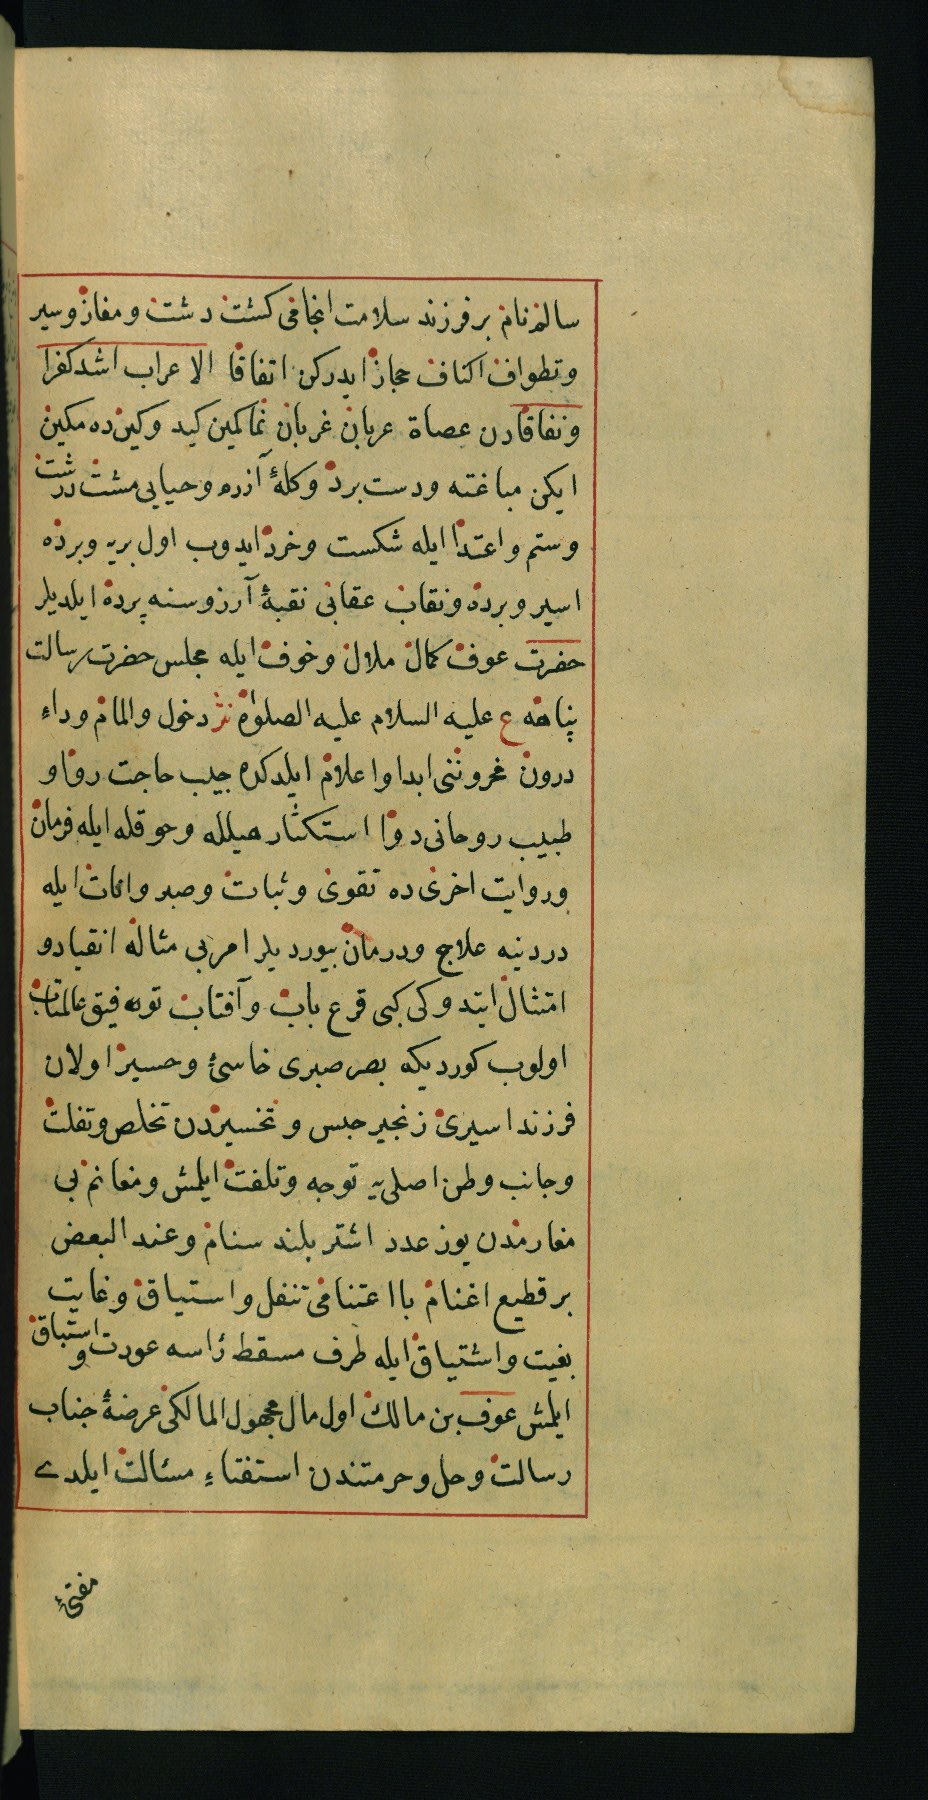 سالم نام بر فرزند سلامت انجامی كشت دشت و مفاز و سیر
و تطواف اكناف حجاز ایدركن اتفاقا الاعراب اشد كفرا
و نفاقادن عصاة عربان غربان نماكمین كید و كین ده مكین
ایكن مباغته و دست برد و كلۀ آزرم و حیایی مشت درشت
و ستم و اعتدا ایله شكست و خرد ایدوب اول بریه و برده
اسیر و برده و نقاب عقابی نقبۀ آرزوسنه پرده ایلدیلر
حضرت عوف كمال ملال و خوف ایله مجلس حضرت رسالت
پناهه ع علیه السلام علیه الصلوة نثر دخول و المام و داء
درون محروننی ابدا و اعلام ایلدكده جیب حاجت روا و
طبیب روحانی دوا استكثار هیلله و حوقله ایله فرمان
و روایت اخری ده تقوی و ثبات و صبر و انات ایله
دردینه علاج و درمان بیوردیلر امر بی مثاله انقیاد و
امتثال ایتدوكی كبی قرع باب و آفتاب توفیق عالمتاب
اولوب كوردیكه بصر صبری خاسئ و حسیر اولان
فرزند اسیری زنجیر حبس و تخسیردن تخلص و تفلت
و جانب وطن اصلی یه توجه و تلفت ایلمش و مغانم بی
مغارمدن یوز عدد اشتر بلند سنام و عند البعض
بر قطیع اغنام با اعتنامی تنفل و استیاق و غایت
بغیت و اشتیاق ایله طرف مسقط رأسه عودت و استباق
ایلمش عوف بن مالك اول مال مجهول المالكی عرضۀ جناب
رسالت و حل و حرمتندن استفتاء مسٔالت ایلدی
مفتئ